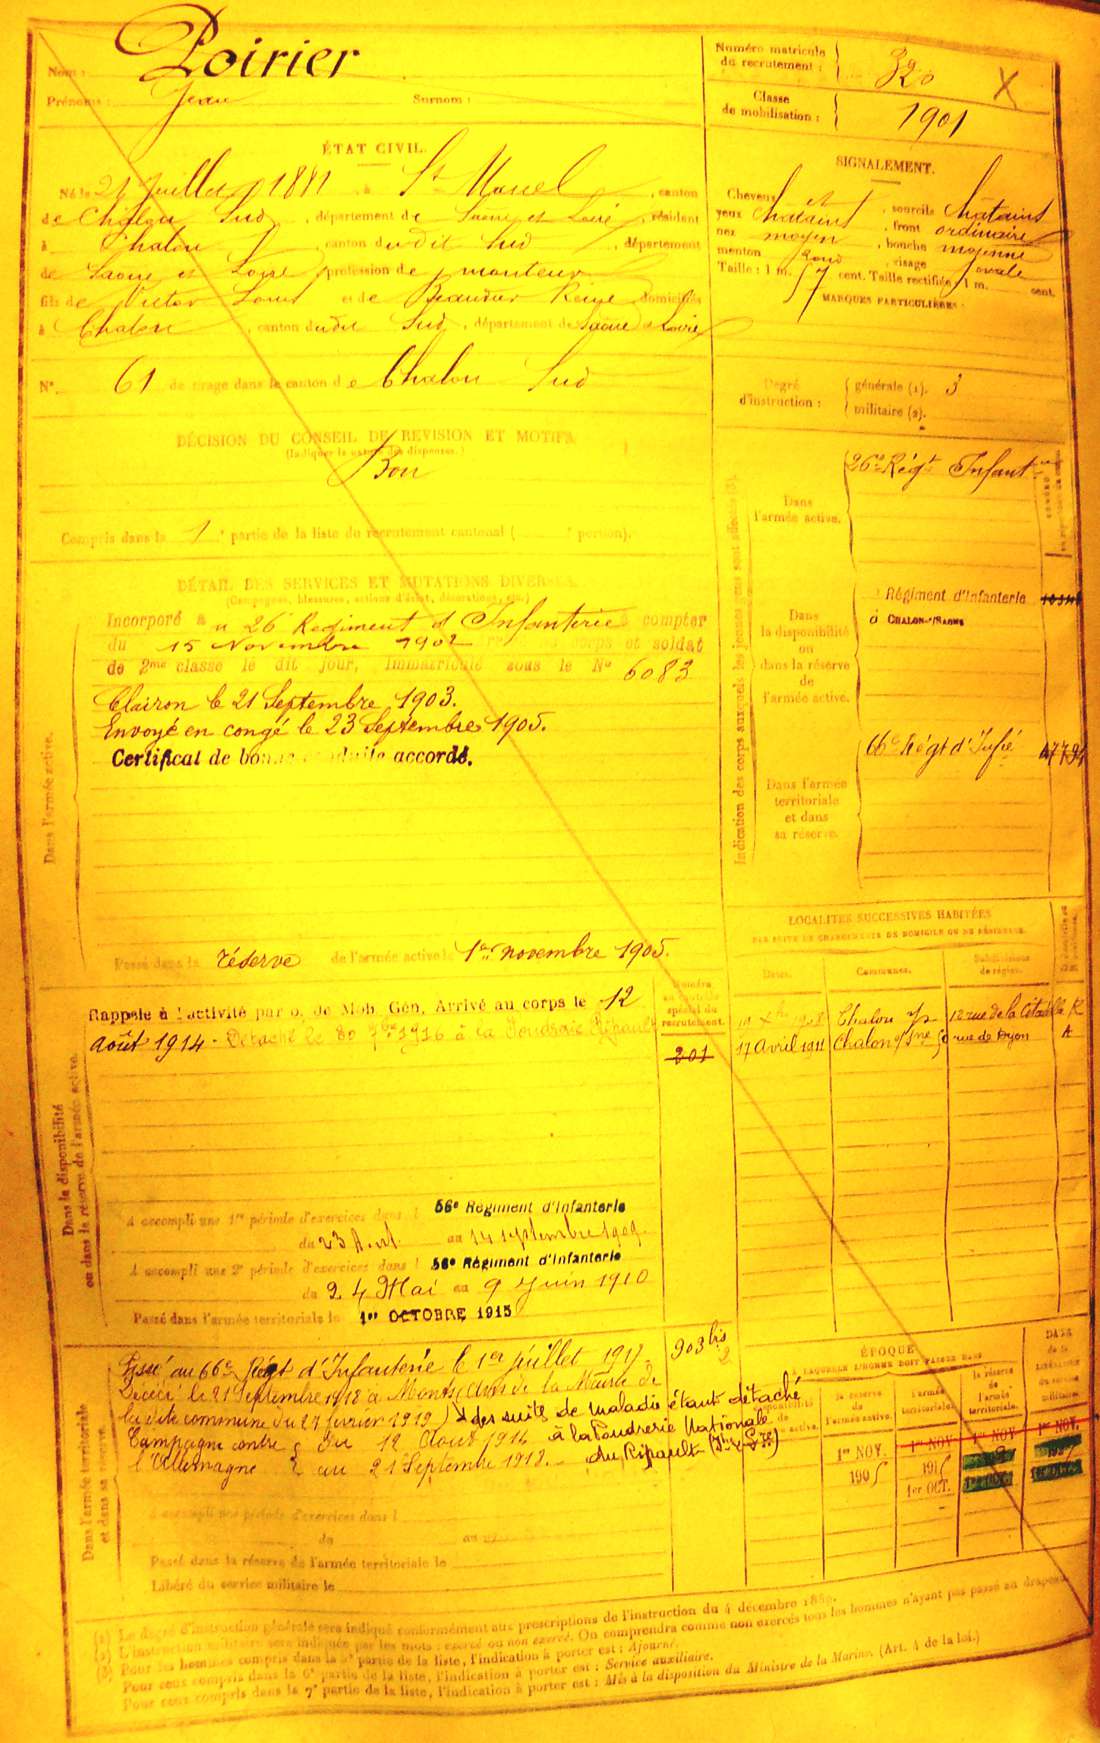 Nom : Poirier
Prénoms : Jean Surnom :
Numéro matricule du recrutement : 320
Classe de mobilisation : 1901
ÉTAT CIVIL.
Né le 21 Juillet 1881, à St Marcel, canton
de Chalon Sud, département de Saone et Loire, résidant
à Chalon, canton dudit Sud, département
de Saone et Loire, profession de monteur
fils de Victor Louis et de Beaudur Reine, domiciliés
à Chalon, canton dudit Sud, département de Saone et Loire
N° 61 de tirage dans le canton de Chalon Sud
SIGNALEMENT.
Cheveux et sourcils châtains
yeux châtains, front ordinaire
nez moyen, bouche moyenne
menton rond, visage ovale
Taille : 1 m. 57 cent. Taille rectifiée : 1 m. cent.
MARQUES PARTICULIÈRES :
Degré d'instruction : générale (1). 3
militaire (2).
DÉCISION DU CONSEIL DE REVISION ET MOTIFS
(Indiquer la nature des dispenses.)
Bon
Compris dans la 1e partie de la liste de recrutement cantonal ( e portion).
DÉTAIL DES SERVICES ET MUTATIONS DIVERSES.
(Campagnes, blessures, actions d'éclat, décorations, etc.)
Incorporé au 26 Regiment d'Infanterie à compter
du 15 Novembre 1902 corps et soldat
de 2me classe le dit jour, immatriculé sous le N° 6083
Clairon le 21 Septembre 1903.
Envoyé en congé le 23 Septembre 1905.
Certificat de bonne conduite accordé.
Dans l'armée active.
Passé dans la réserve de l'armée active le 1er novembre 1905.
Indication des corps auxquels les jeunes gens sont affectés (3).
Dans l'armée active.
26e Régt Infantrie
Dans la disponibilité ou dans la réserve de l'armée active.
Régiment d'Infanterie
à CHALON-s/SAONE
Dans l'armée territoriale et dans sa réserve.
66e Régt d'Infie
LOCALITÉS SUCCESSIVES HABITÉES
PAR SUITE DE CHANGEMENTS DE DOMICILE OU DE RÉSIDENCE.
Dates. Communes. Subdivisions de région.
1908 Chalon 12 rue de la Citadelle R
17 Avril 1911 Chalon s/Sne rue de Dijon
Dans la disponibilité ou dans la réserve de l'armée active.
Numéro au contrôle spécial du recrutement.
201
Rappelé à l'activité par o. de Mob. Gén. Arrivé au corps le 12
août 1914. Détaché le 30 7bre 1916 à la Poudrerie Ripault
A accompli une 1re période d'exercices dans l 56e Régiment d'Infanterie
du 23 Août au 14 septembre 1909.
A accompli une 2e période d'exercices dans l 56e Régiment d'Infanterie
du 24 Mai au 9 Juin 1910
Passé dans l'armée territoriale le 1er OCTOBRE 1915
Dans l'armée territoriale et dans sa réserve.
Passé au 66e Régt d'Infanterie le 1er juillet 1917
903 bis
Décédé le 21 Septembre 1918 à Monts (Avis de la Mairie de
la dite commune du 27 février 1919) des suites de maladie étant détaché
à la Poudrerie Nationale
du Ripault
Campagne contre l'Allemagne du 12 Août 1914
au 21 Septembre 1918.
A accompli une période d'exercices dans l
du au
Passé dans la réserve de l'armée territoriale le
Libéré du service militaire le
ÉPOQUE
À LAQUELLE L'HOMME DOIT PASSER DANS
la réserve de l'armée active. l'armée territoriale. la réserve de l'armée territoriale.
DATE de la LIBÉRATION du service militaire.
1er NOV. 1er NOV 1er NOV 1er NOV.
1905 1915
1er OCT.
(1) Le degré d'instruction générale sera indiqué conformément aux prescriptions de l'instruction du 4 décembre 1889.
(2) L'instruction militaire sera indiquée par les mots : exercé ou non exercé. On comprendra comme non exercés tous les hommes n'ayant pas passé au drapeau.
(3) Pour les hommes compris dans la 5e partie de la liste, l'indication à porter est : Ajourné.
Pour ceux compris dans la 6e partie de la liste, l'indication à porter est : Service auxiliaire.
Pour ceux compris dans la 7e partie de la liste, l'indication à porter est : Mis à la disposition du Ministre de la Marine. (Art. 4 de la loi.)